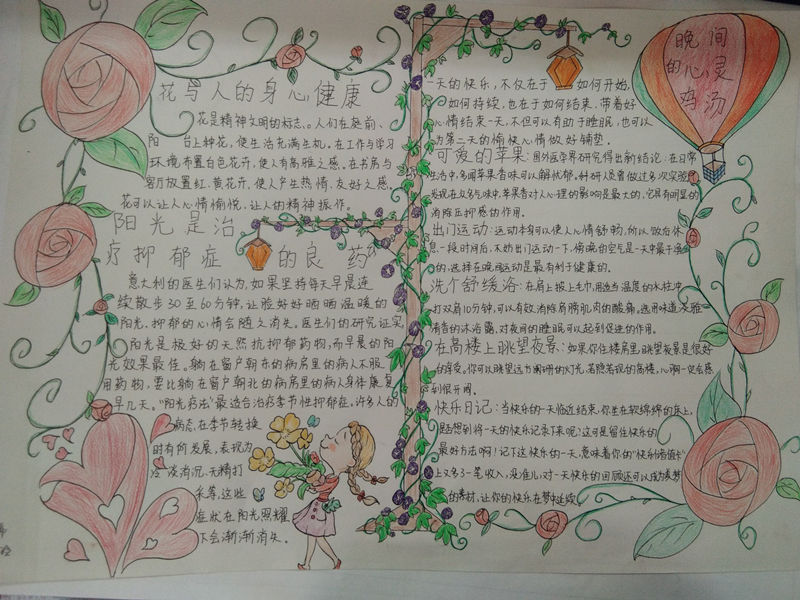 花与人的身心健康
花是精神文明的标志。人们在庭前、
阳台上种花,使生活充满生机。在工作与学习
环境布置白色花卉,使人有高雅之感。在书房与
客厅放置红、黄花卉、使人产生热情、友好之感。
花可以让人心情愉悦,让人的精神振作。
阳光是治
疗抑郁症的良药
意大利的医生们认为,如果坚持每天早晨连
续散步30至60分钟,让脸好好晒晒温暖的
阳光,抑郁的心情会随之消失。医生们的研究证实,
阳光是极好的天然抗抑郁药物,而早晨的阳
光效果最佳。躺在窗户朝东的病房里的病人不服
用药物,要比躺在窗户朝北的病房里的病人身体康复
早几天。"阳光疗法"最适合治疗季节性抑郁症。许多人的
病态,在季节转换
时有所发展,表现为
冷淡消沉、无精打
采等,这些
症状在阳光照耀
下会渐渐消失。
晚间
的心灵
鸡汤
一天的快乐,不仅在于如何开始,
如何持续,也在于如何结束。带着好
心情结束一天,不但可以有助于睡眠,也可以
为第二天的愉快心情做好铺垫。
可爱的苹果:国外医学界研究得出新结论:在日常
生活中,多闻苹果香味可以解忧郁。科研人员曾做过多次实验
发现在众多气味中,苹果香对人心理的影响是最大的,它具有明显的
消除压抑感的作用。
出门运动:运动本身可以使人心情舒畅,所以饭后休
息一段时间后,不妨出门运动一下,傍晚的空气是一天中最干净
的,选择在晚间运动是最有利于健康的。
洗个舒缓浴:在肩上披上毛巾,用适当温度的水柱冲
打双肩10分钟,可以有效消除肩膀肌肉的酸痛。选用味道淡雅
清香的沐浴露,对夜间的睡眠可以起到促进的作用。
在高楼上眺望夜景:如果你住楼房里,眺望夜景是很好
的享受。你可以眺望远方阑珊的灯光,若隐若现的高楼,心胸一定会感
到很开阔。
快乐日记:当快乐的一天临近结束,你坐在软绵绵的床上,
是否想到将一天的快乐记录下来呢?这可是留住快乐的
最好方法啊!记下这快乐的一天,意味着你的"快乐储值卡"
上又多了一笔收入,没准儿,对一天快乐的回顾还可以成为美梦
的素材,让你的快乐在梦中延续。